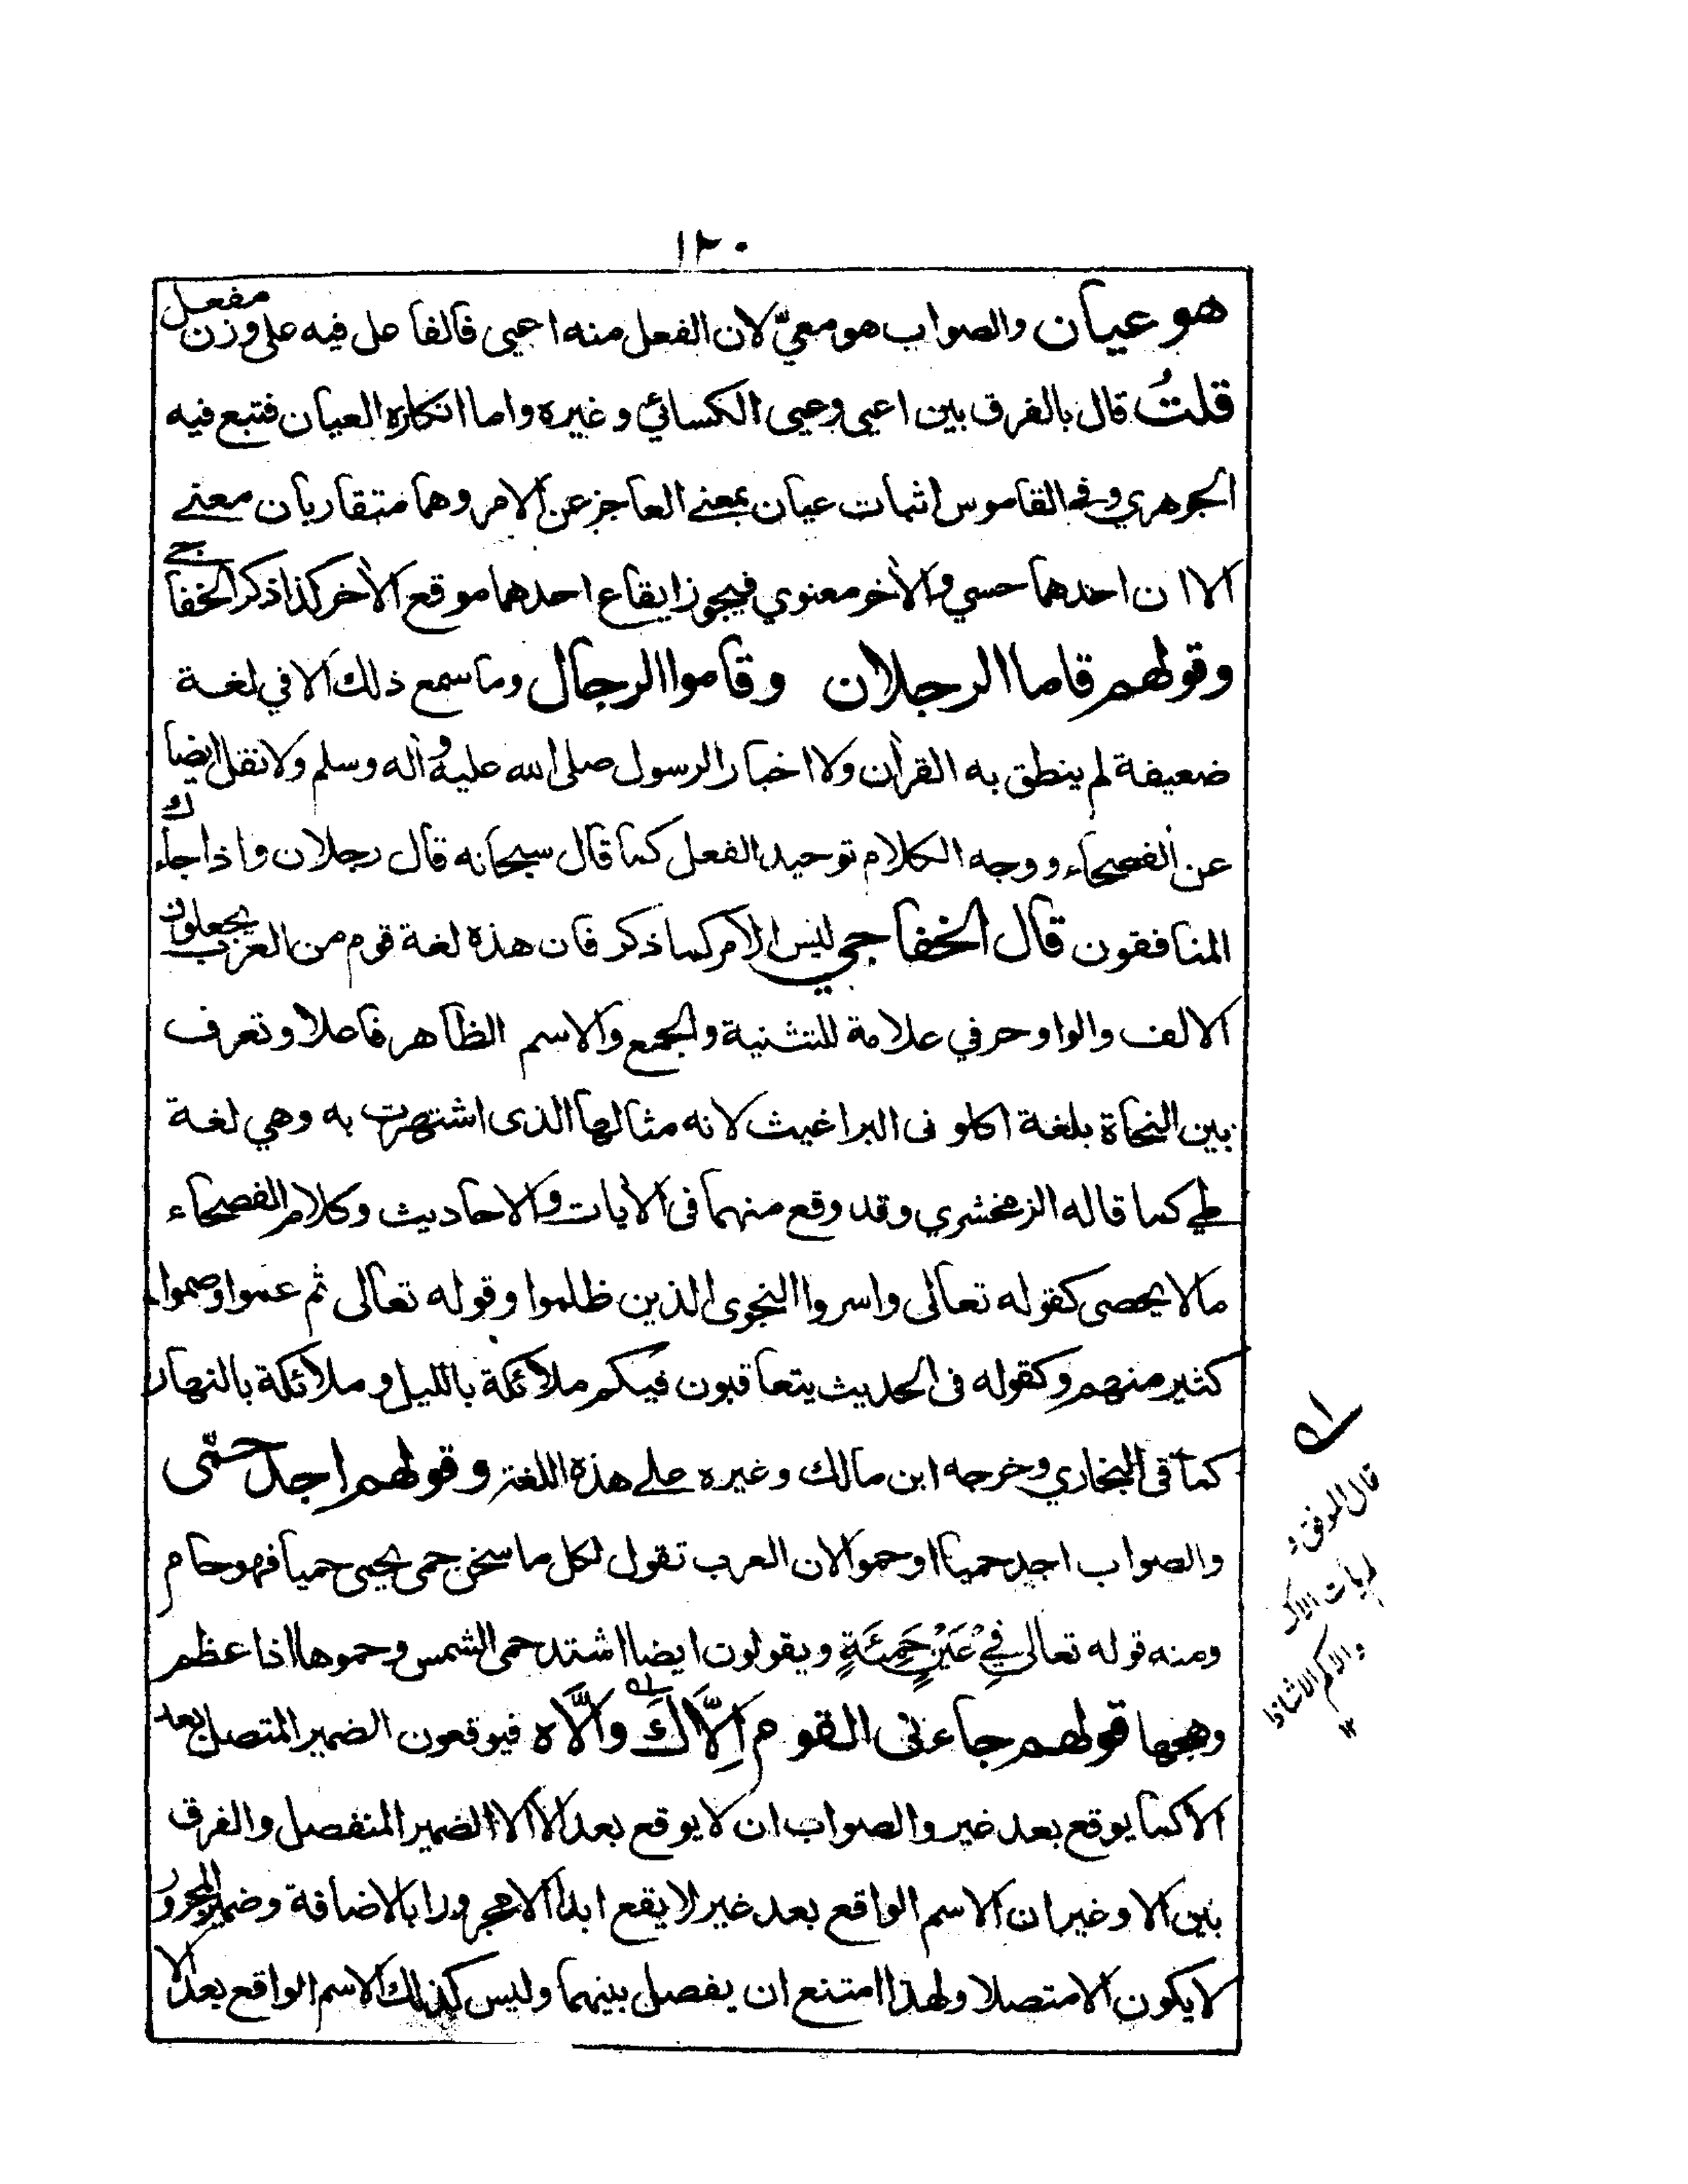 ١٢٠
هو عيان والصواب هو معيّ لان الفعل منه اعيى فالفاعل فيه على وزن مفعل
قلتُ قال بالفرق بين اعيى وعيى الكسائي وغيره واما انكاره العيان فتبع فيه
الجوهري وفي القاموس اثبات عيان بمعنے العاجز عن الامر وهما متقاربان معنے
الا ان احدهما حسي والأخر معنوي فيجوز ايقاع احدهما موقع الأخر كذا ذكر الخفاجے
وقولهم قاما الرجلان وقاموا الرجال وما سمع ذلك الا في لغة
ضعيفة لم ينطق به القرأن ولا اخبار الرسول صلى الله عليه وأله وسلم ولا نقل ايضا
عن الفصحاء ووجه الكلام توحيد الفعل كما قال سبحانه قال رجلان واذا جاءك
المنافقون قال الخفاجي ليس الأمر كما ذكر فان هذه لغة قوم من العرب يجعلون
الالف والواو حرفي علامة للتثنية والجمع والاسم الظاهر فاعلا وتعرف
بين النحاة بلغة اكلوني البراغيث لانه مثالها الذى اشتهرت به وهي لغة
طي كما قاله الزمخشري وقد وقع منهما فى الأيات والاحاديث وكلام الفصحاء
مالا يحصى كقوله تعالى واسروا النجوى الذين ظلموا وقوله تعالى ثم عموا وصموا
كثير منهم وكقوله فى الحديث يتعاقبون فيكم ملائكة بالليل وملائكة بالنهار
كما فى البخاري وخرجه ابن مالك وغيره علے هذه اللغة وقولهم اجد حمّى
والصواب اجد حميا او حموا لان العرب تقول لكل ما سخن حمى يحمى حميا فهو حام
ومنه قوله تعالى فِيْ عَيْنٍ حَمِئَةٍ ويقولون ايضا اشتد حمى الشمس وحموها اذا عظم
وهجها قولهم جاءنى القوم اِلَّاكَ واِلَّاه فيوقعون الضمير المتصل بعد
الا كما يوقع بعد غير والصواب ان لا يوقع بعد الا الا الضمير المنفصل والفرق
بين الا وغير ان الاسم الواقع بعد غير لا يقع ابدا الا مجرورا بالاضافة وضمير المجرور
لا يكون الا متصلا ولهذا امتنع ان يفصل بينهما وليس كذلك الاسم الواقع بعد الا
قال الموفق